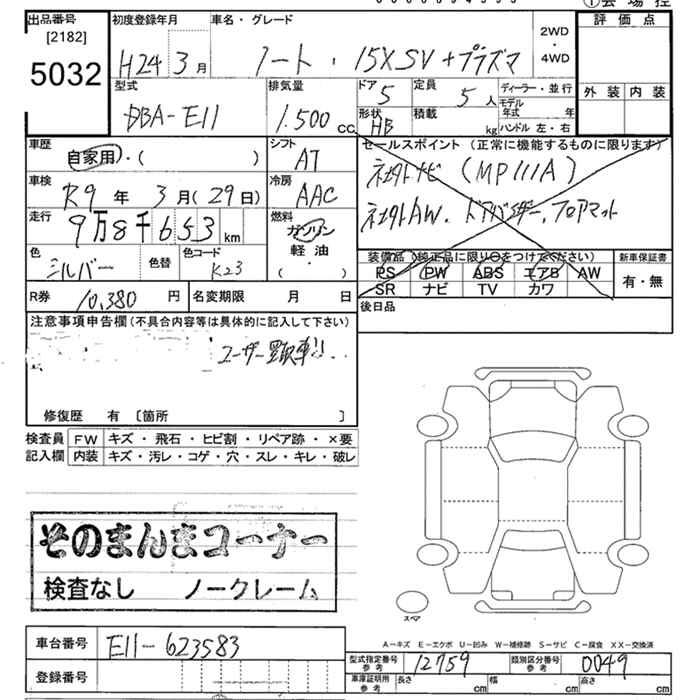 出品番号 [2182] 5032
初度登録年月 H24 3月
車名・グレード ノート・15X SV+プラズマ
2WD・4WD
① 会場控
評価点
外装 内装
型式 DBA-E11
排気量 1.500 cc
ドア 5
形状 HB
定員 5人
積載 kg
ディーラー・並行
モデル年式 年
ハンドル 左・右
車歴 自家用・( )
シフト AT
車検 R9年 3月(29日)
冷房 AAC
走行 9万8千653 km
燃料 ガソリン 軽油 ・( )
色 シルバー 色替
色コード K23
R券 10,380円
名変期限 月 日
セールスポイント (正常に機能するものに限ります)
社外ナビ (MP111A)
社外AW、ドアバイザー、フロアマット
装備品 (純正品に限り○をつけてください)
PS PW ABS エアB AW
SR ナビ TV カワ
新車保証書
有・無
後日品
注意事項申告欄 (不具合内容等は具体的に記入して下さい)
ユーザー買取車!!
修復歴 有 〔箇所 〕
検査員記入欄
FW キズ・飛石・ヒビ割・リペア跡・×要
内装 キズ・汚レ・コゲ・穴・スレ・キレ・破レ
そのまんまコーナー
検査なし ノークレーム
スペア
A-キズ E-エクボ U-凹み W-補修跡 S-サビ C-腐食 XX-交換済
車台番号 E11-623583
型式指定番号 参考 12759
類別区分番号 参考 0049
登録番号
車庫証明用 参考 長さ cm 幅 cm 高さ cm